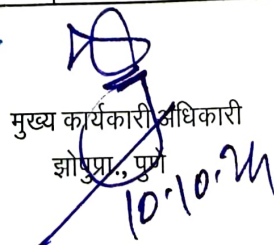 मुख्य कार्यकारी अधिकारी
झोपुप्रा., पुणे
10.10.24